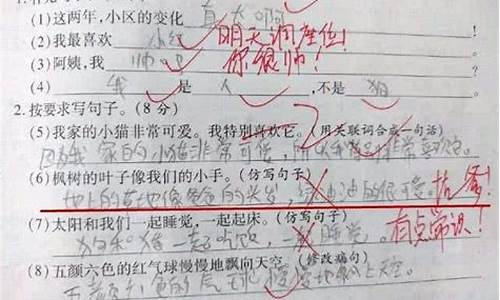 (1)这两年,小区的变化 真大啊
(2)我最喜欢 小红 明天调座位!
(3)阿姨,我 帅吗 你很帅!
(4) 我 是 人 ,不是 狗
2.按要求写句子。(8分)
(5)我家的小猫非常可爱。我特别喜欢它。(用关联词合成一句话)
因为我家的小猫非常可爱,所以我非常喜欢它。
(6)枫树的叶子像我们的小手。(仿写句子)
地上的草地像爸爸的头发,绿油油的很可爱。 抗爹!
(7)太阳和我们一起睡觉,一起起床。(仿写句子)
狗和猪一起吃饭,一起睡觉。 有点常识!
(8)五颜六色的红气球慢慢地飘向天空。(修改病句)
五颜六色的气球慢慢地飘上天空。